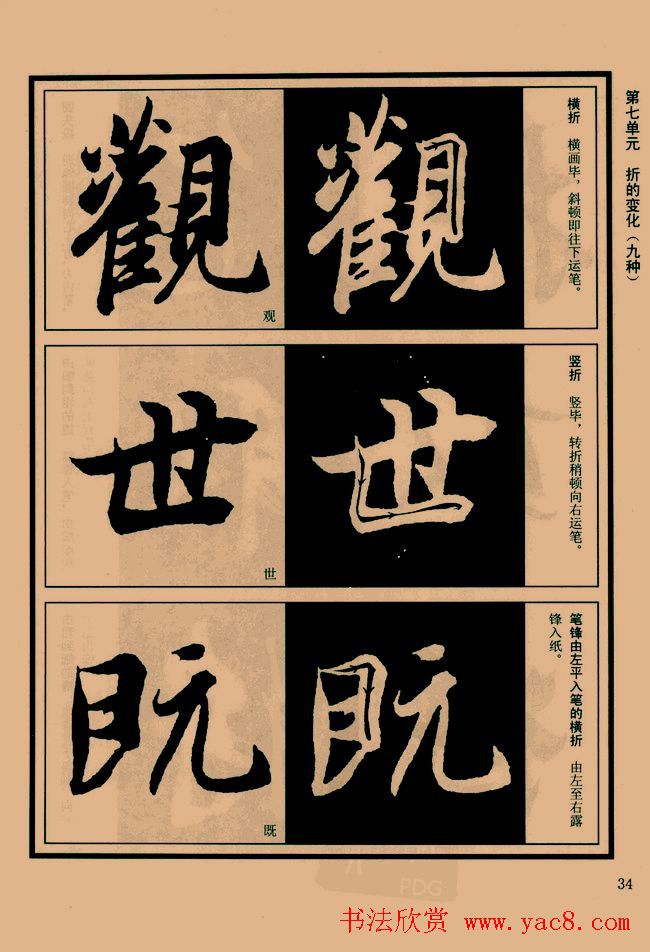 第七单元 折的变化（九种）
横折 横画毕，斜顿即往下运笔。
觀 觀
观
竖折 竖毕，转折稍顿向右运笔。
世 世
世
笔锋由左平入笔的横折 由左至右露
锋入纸。
既 既
既
34
PDG
书法欣赏 www.yac8.com